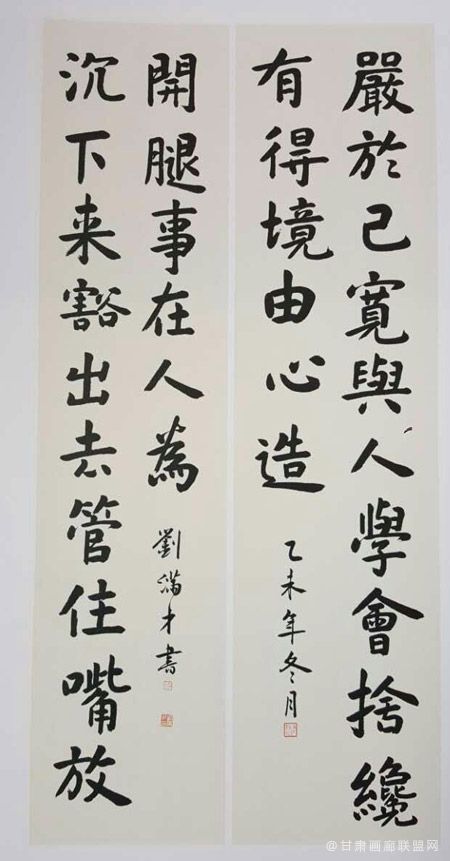 嚴於己寬與人學會捨纔
有得境由心造
乙未年冬月
沉下来豁出去管住嘴放
開腿事在人為
劉滿才書
@甘肃画廊联盟网